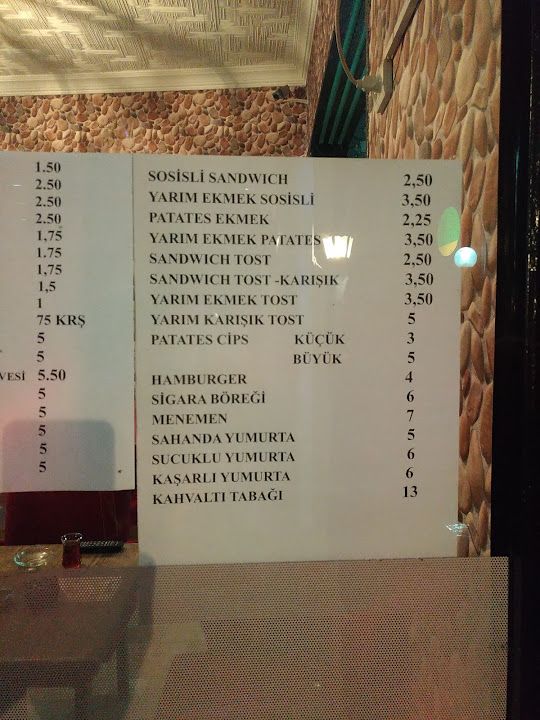 1.50
2.50
2.50
2.50
1,75
1.75
1,75
1,5
1
75 KRŞ
5
5
VESİ 5.50
5
5
5
5
5
SOSİSLİ SANDWICH 2,50
YARIM EKMEK SOSİSLİ 3,50
PATATES EKMEK 2,25
YARIM EKMEK PATATES 3,50
SANDWICH TOST 2,50
SANDWICH TOST -KARIŞIK 3,50
YARIM EKMEK TOST 3,50
YARIM KARIŞIK TOST 5
PATATES CİPS KÜÇÜK 3
BÜYÜK 5
HAMBURGER 4
SİGARA BÖREĞİ 6
MENEMEN 7
SAHANDA YUMURTA 5
SUCUKLU YUMURTA 6
KAŞARLI YUMURTA 6
KAHVALTI TABAĞI 13